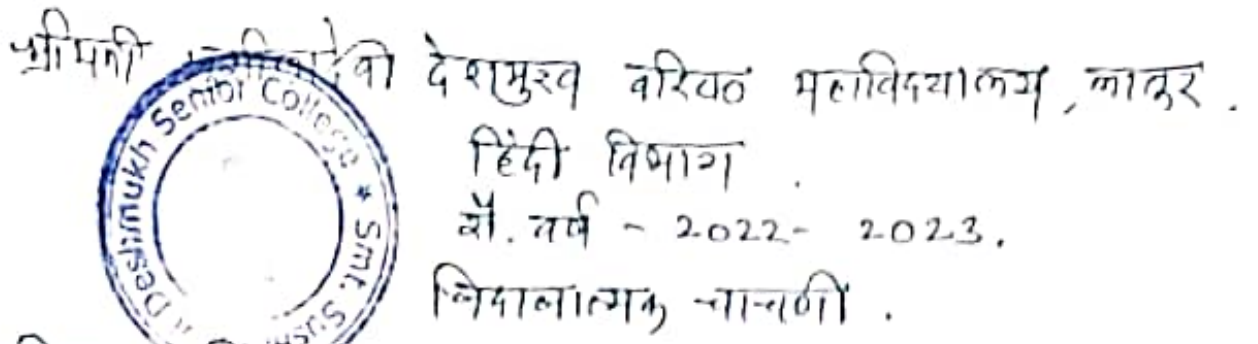 श्रीमती देशमुख वरिष्ठ महाविद्यालय, लातूर.
हिंदी विभाग.
शै. वर्ष - 2022 - 2023.
निदानात्मक चाचणी.
Deshmukh Senior College * Smt.